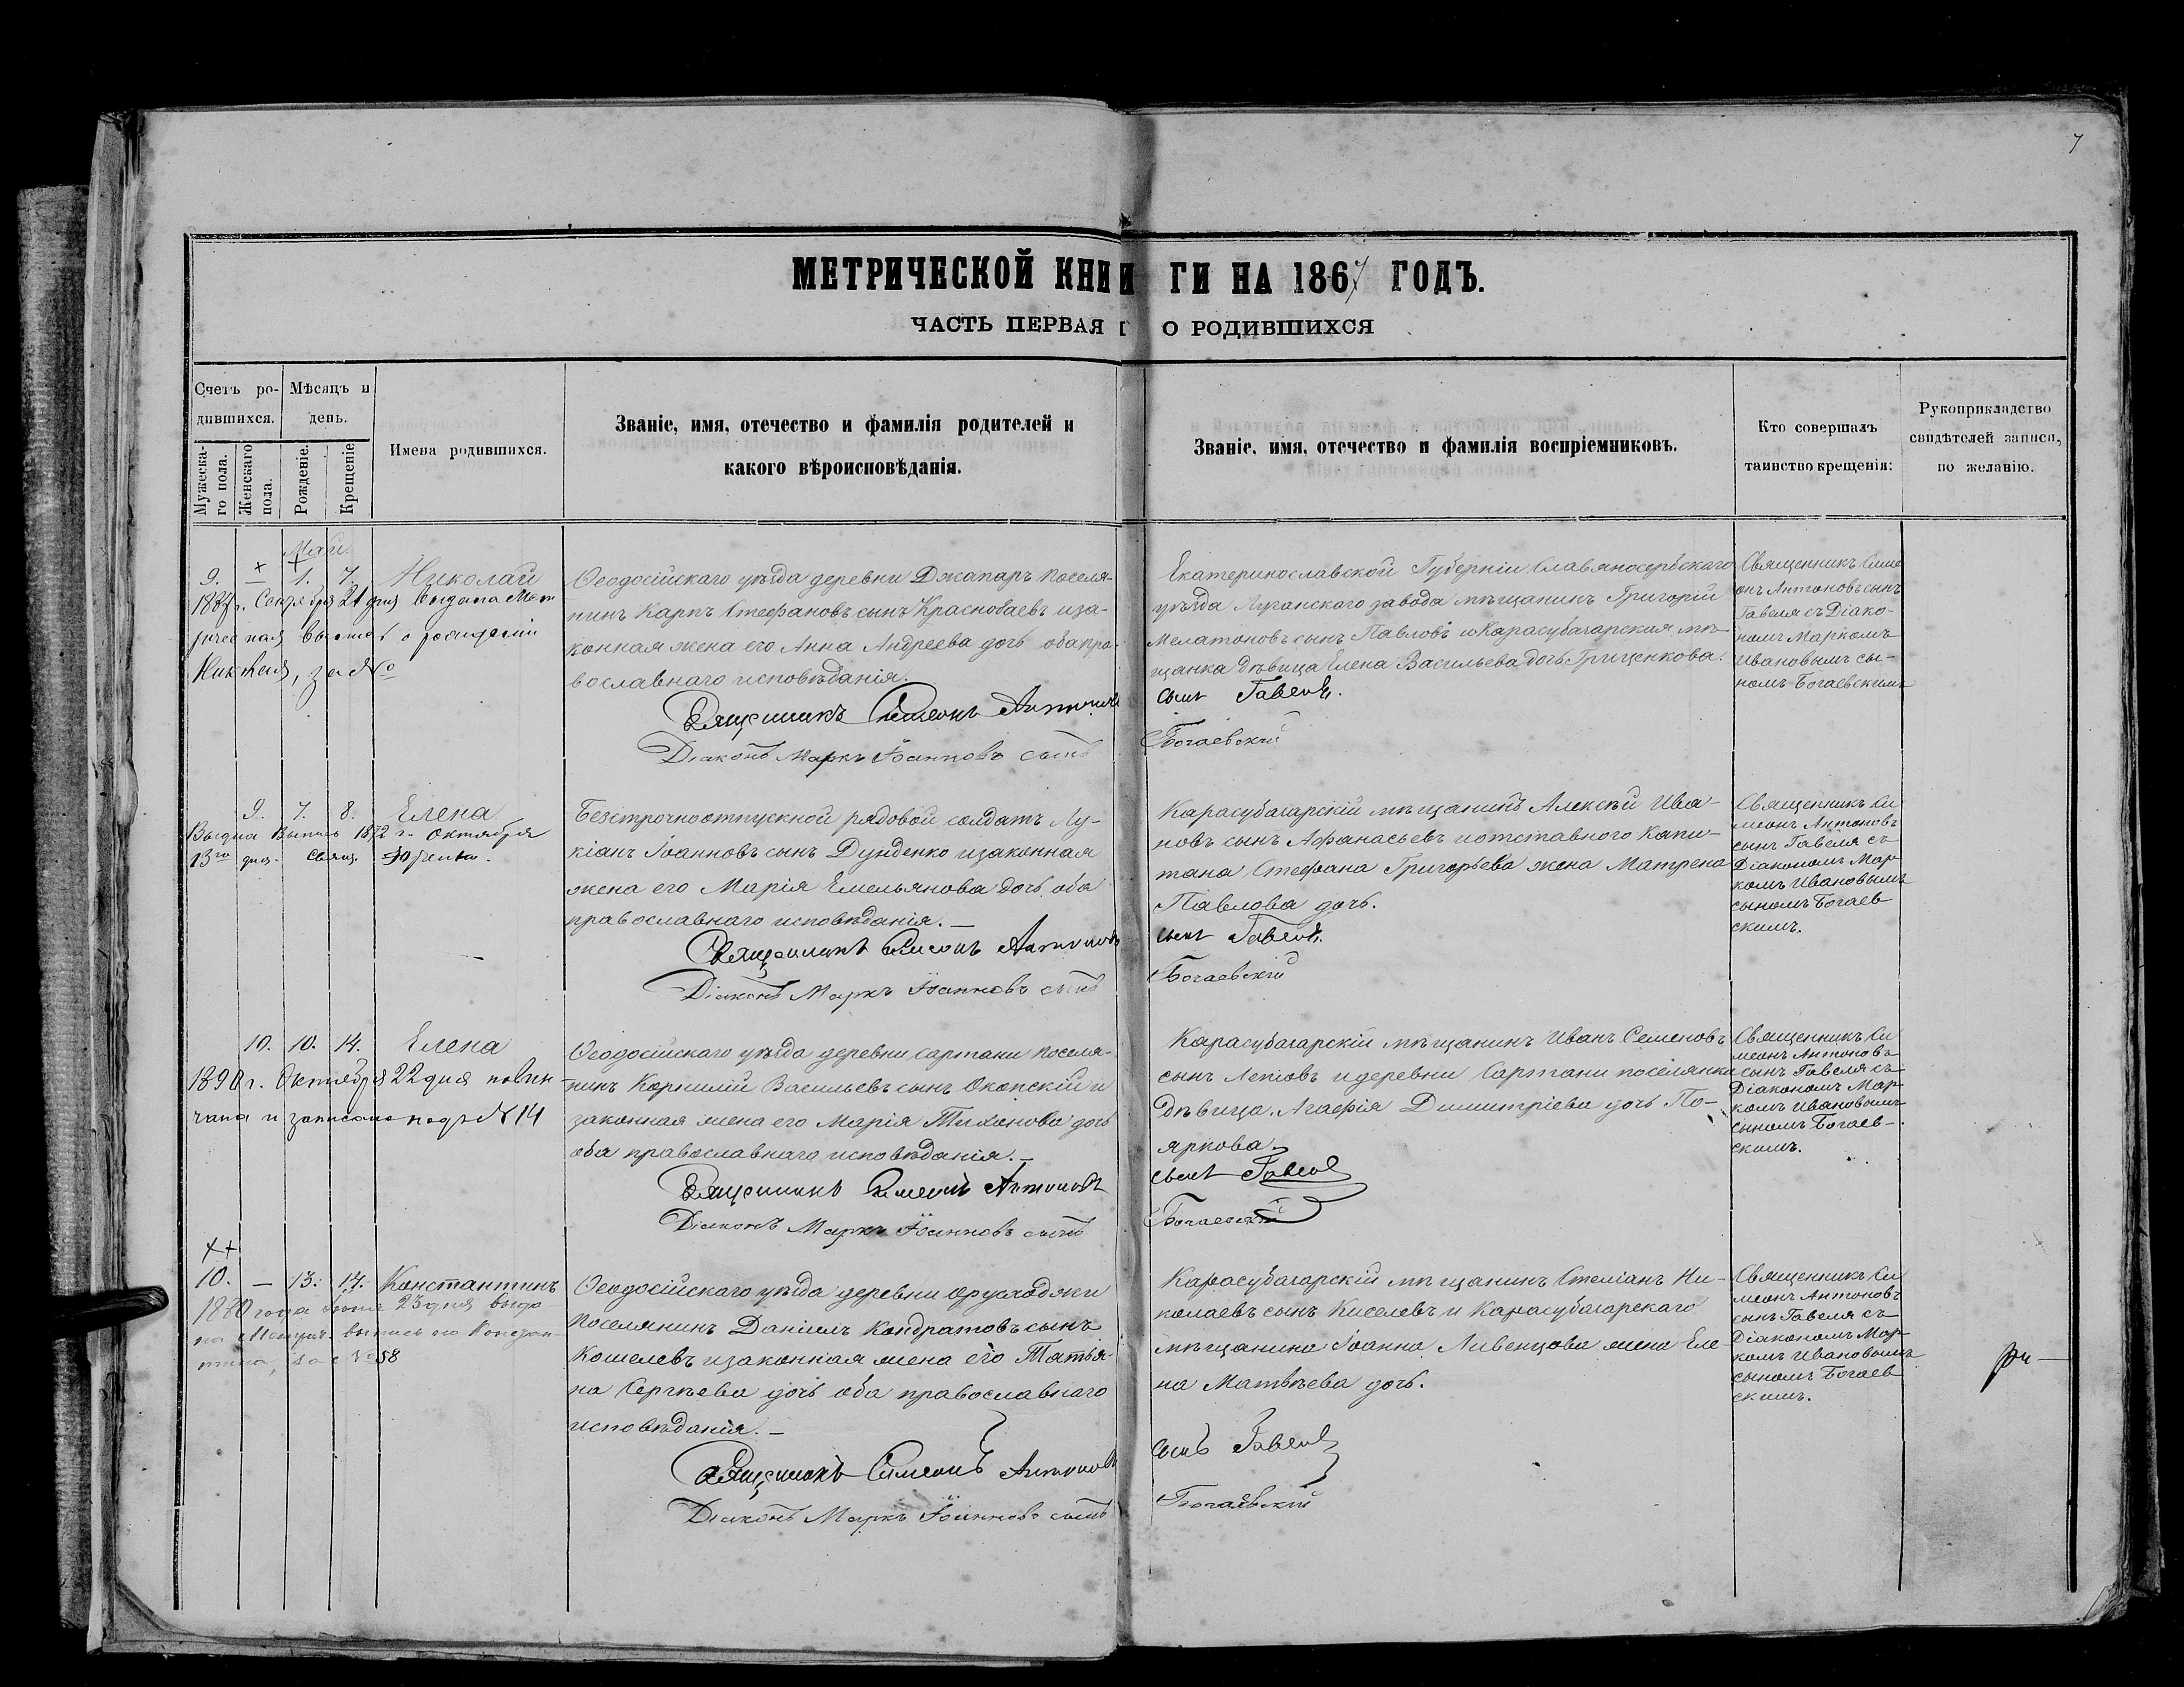 7
МЕТРИЧЕСКОЙ КНИГИ НА 1867 ГОДЪ.
ЧАСТЬ ПЕРВАЯ О РОДИВШИХСЯ
Счетъ ро-
дившихся.
Мужеска-
го пола.
Женскаго
пола.
Мѣсяцъ и
день.
Рожденіе.
Крещеніе
Имена родившихся.
Званіе, имя, отечество и фамилія родителей и
какого вѣроисповѣданія.
Званіе, имя, отечество и фамилія воспріемниковъ.
Кто совершалъ
таинство крещенія:
Рукоприкладство
свидѣтелей записи,
по желанію.
Май.
9. — 1. 7. Николай
Сентября 21 дня выдана Мет
рическая выпись о рожденіи
Николая, за №
Ѳеодосійскаго уѣзда деревни Джапаръ поселя-
нинъ Карпъ Стефановъ сынъ Красноваевъ иза-
конная жена его Анна Андреева дочь оба пра-
вославнаго исповѣданія.
Священникъ Симеонъ Антоновъ
Діаконъ Маркъ Іоанновъ сынъ
Екатеринославской Губерніи Славяносербскаго
уѣзда Луганскаго завода мѣщанинъ Григорій
Мелатоновъ сынъ Павловъ и Карасубагарская мѣ-
щанка дѣвица Елена Васильева дочь Гриценкова.
сынъ Гавеля.
Богаевскій
Священникъ Симе
онъ Антоновъ сынъ
Гавеля съ Діако-
номъ Маркомъ
Ивановымъ сы-
номъ Богаевскимъ
9. 7. 8. Елена
Выдана Выпись 1872 г. Октября
13го дня. Свящ.
Безсрочноотпускной рядовой солдатъ Лу-
кіанъ Іоанновъ сынъ Дунденко изаконная
жена его Марія Емельянова дочь оба
православнаго исповѣданія. —
Священникъ Симеонъ Антоновъ
Діаконъ Маркъ Іоанновъ сынъ
Карасубагарскій мѣщанинъ Алексѣй Ива-
новъ сынъ Афанасьевъ и отставного Капи-
тана Стефана Григорьева жена Матрена
Павлова дочь.
сынъ Гавеля.
Богаевскій
Священникъ Си
меонъ Антоновъ
сынъ Гавеля съ
Діакономъ Мар
комъ Ивановымъ
сыномъ Богаев
скимъ.
10. 10. 14. Елена
1890 г. Октября 22 дня повѣн-
чана и записана подъ № 14
Ѳеодосійскаго уѣзда деревни Сартани поселя-
нинъ Корнилій Васильевъ сынъ Окопскій и
законная жена его Марія Тихонова дочь
оба православнаго исповѣданія. —
Священникъ Симеонъ Антоновъ
Діаконъ Маркъ Іоанновъ сынъ
Карасубагарскій мѣщанинъ Иванъ Семеновъ
сынъ Леповъ и деревни Сартани поселянка
дѣвица Агафія Димитріева дочь По-
яркова.
сынъ Гавеля
Богаевскій
Священникъ Си
меонъ Антоновъ
сынъ Гавеля съ
Діакономъ Мар
комъ Ивановымъ
сыномъ Богаев-
скимъ.
10. — 13. 14. Константинъ
1880 года Іюня 23 дня выда-
на Метрич. выпись но Констан-
тина, за № 58
Ѳеодосійскаго уѣзда деревни Фрусходжи
поселянинъ Даніилъ Кондратовъ сынъ
Кошелевъ изаконная жена его Татья-
на Сергѣева дочь оба православнаго
исповѣданія. —
Священникъ Симеонъ Антоновъ
Діаконъ Маркъ Іоанновъ сынъ
Карасубагарскій мѣщанинъ Стеліанъ Ни-
колаевъ сынъ Киселевъ и Карасубагарскаго
мѣщанина Іоанна Ливенцова жена Еле-
на Матвѣева дочь.
сынъ Гавеля
Богаевскій
Священникъ Си
меонъ Антоновъ
сынъ Гавеля съ
Діакономъ Мар
комъ Ивановымъ
сыномъ Богаев
скимъ.